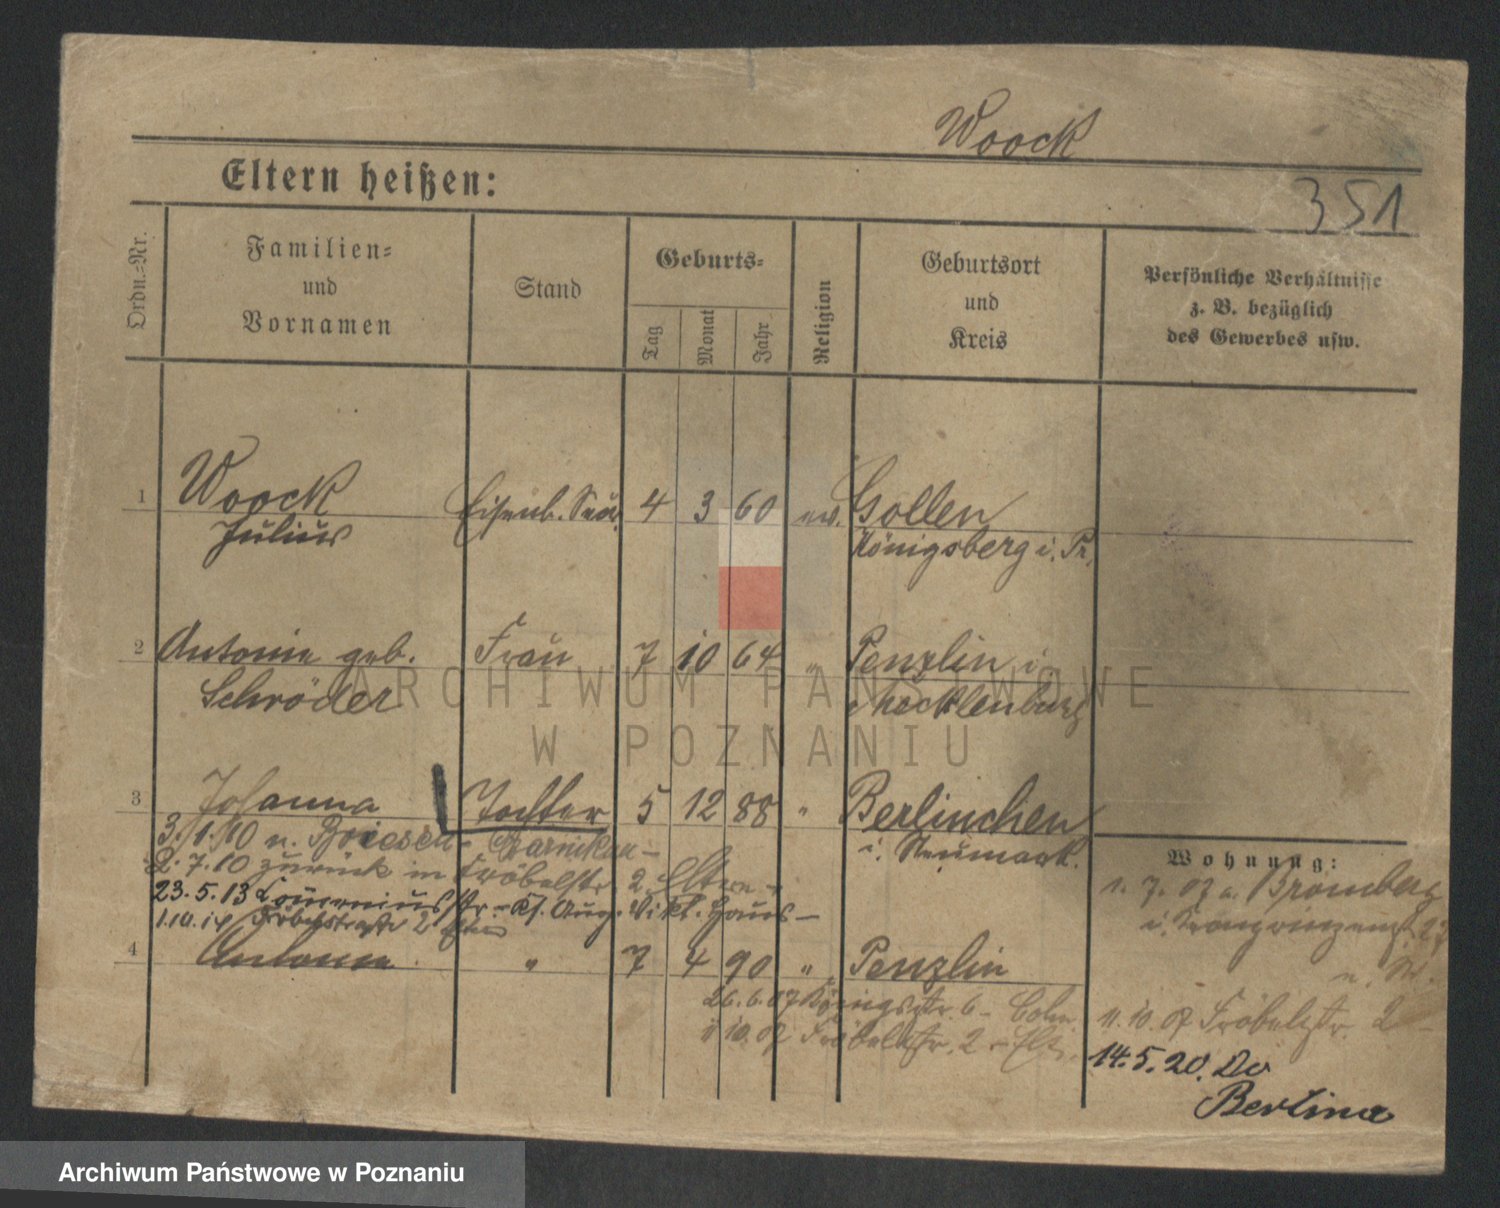 Woock
Eltern heißen:
351
Ordn.=Nr.
Familien=
und
Vornamen
Stand
Geburts=
Tag
Monat
Jahr
Religion
Geburtsort
und
Kreis
Persönliche Verhältnisse
z. B. bezüglich
des Gewerbes usw.
1 Woock Eisenb. 4 3 60 ev. Gollen
Julius Königsberg i. Pr.
2 Antonie geb. Frau 7 10 64 " Penzlin i
Schröder Mecklenburg
3 Johanna Tochter 5 12 88 " Berlinchen
i. Neumark.
3. 1. 10 n. Czarnikau –
2. 7. 10 zurück in Fröbelstr 2 Eltern –
23. 5. 13 str. – Ks. Aug. Vikt. Haus –
1.10.14 Fröbelstraße 2 Eltern
4 Antonie " 7 4 90 " Penzlin
26. 6. 07 Königstr. 6 –
11 10. 07 Fröbelstr. 2 –
Wohnung:
1. 7. 07 a. Bromberg
i. Kronprinzenstr.
11. 10. 07 Fröbelstr. 2 –
14. 5. 20. Do
Berlina
ARCHIWUM PAŃSTWOWE
W POZNANIU
Archiwum Państwowe w Poznaniu